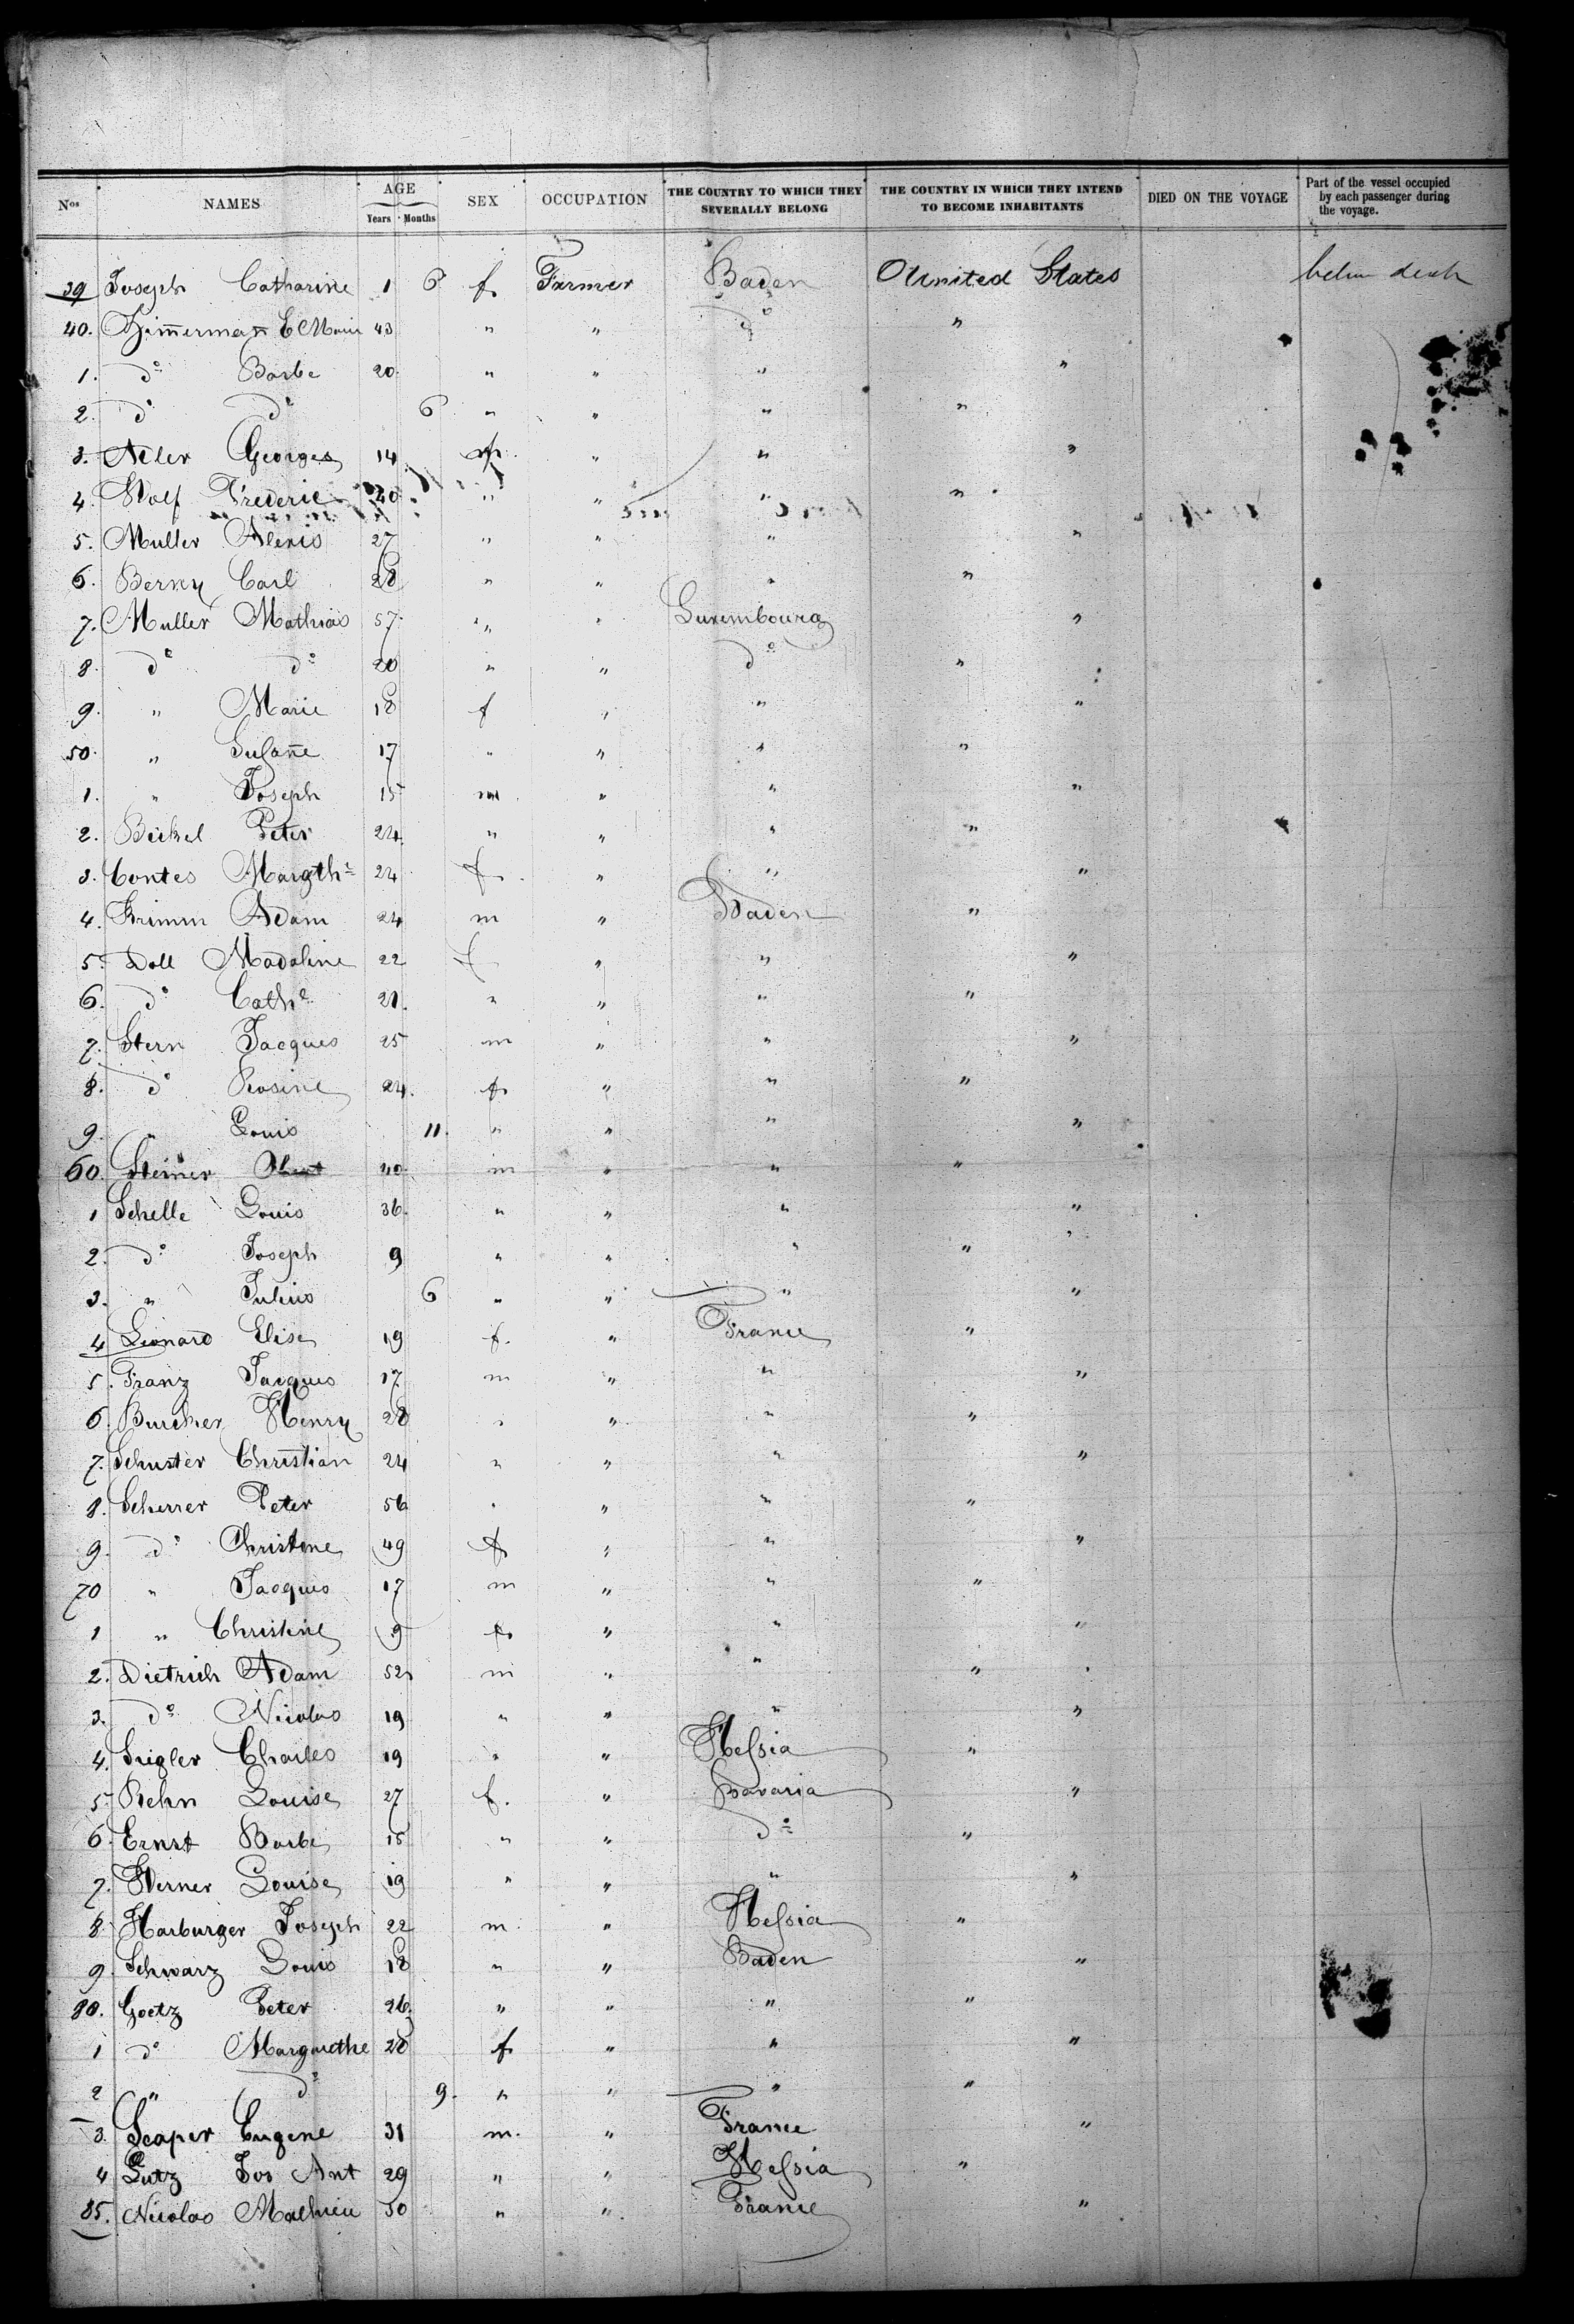 Nos NAMES AGE Years Months SEX OCCUPATION THE COUNTRY TO WHICH THEY SEVERALLY BELONG THE COUNTRY IN WHICH THEY INTEND TO BECOME INHABITANTS DIED ON THE VOYAGE Part of the vessel occupied by each passenger during the voyage.
39 Joseph Catharine 1 6 f Farmer Baden United States below deck
40. Zimmerman 43 " " do "
1. do Barbe 20 " " " "
2. do do 6 " " " "
3. Adler Georges 14 m " " "
4. Wolf Frederic 40 " " " "
5. Muller Alexis 27 " " " "
6. Berny Carl 28 " " " "
7. Muller Mathias 57 " " Luxembourg "
8. do do 20 " " do "
9. " Marie 18 f " " "
50. " Susan̄e 17 " " " "
1. " Joseph 15 m " " "
2. Beckel Peter 24 " " " "
3. Contes Margthe 24 f " " "
4. Grimm Adam 24 m " Baden "
5. Doll Madaline 22 f " " "
6. do Cathe 21 " " " "
7. Stern Jacques 25 m " " "
8. do Rosine 24 f " " "
9. " Louis 11 " " " "
60. Steiner 40 m " " "
1 Schelle Louis 36 " " " "
2. do Joseph 9 " " " "
3. " Julius 6 " " " "
4 Leonard Elise 19 f. " France "
5. Franz Jacques 17 m " " "
6. Burcher Henry 28 " " " "
7. Schuster Christian 24 " " " "
8. Scherrer Peter 56 " " " "
9. do Christine 49 f " " "
70 " Jacques 17 m " " "
1 " Christine 9 f " " "
2. Dietrich Adam 52 m " " "
3. do Nicolas 19 " " " "
4. Sigler Charles 19 " " Hessia "
5. Rehn Louise 27 f. " Bavaria "
6. Ernst Barbe 15 " " do "
7. Werner Louise 19 " " " "
8. Harburger Joseph 22 m " Hessia "
9. Schwarz Louis 18 " " Baden "
80. Goetz Peter 26 " " " "
1 do Margarethe 28 f " " "
2 " do 9. " " " "
3. Scaper Eugene 31 m. " France "
4 Lutz Jos Ant 29 " " Hessia "
85. Nicolas Mathieu 30 " " France "